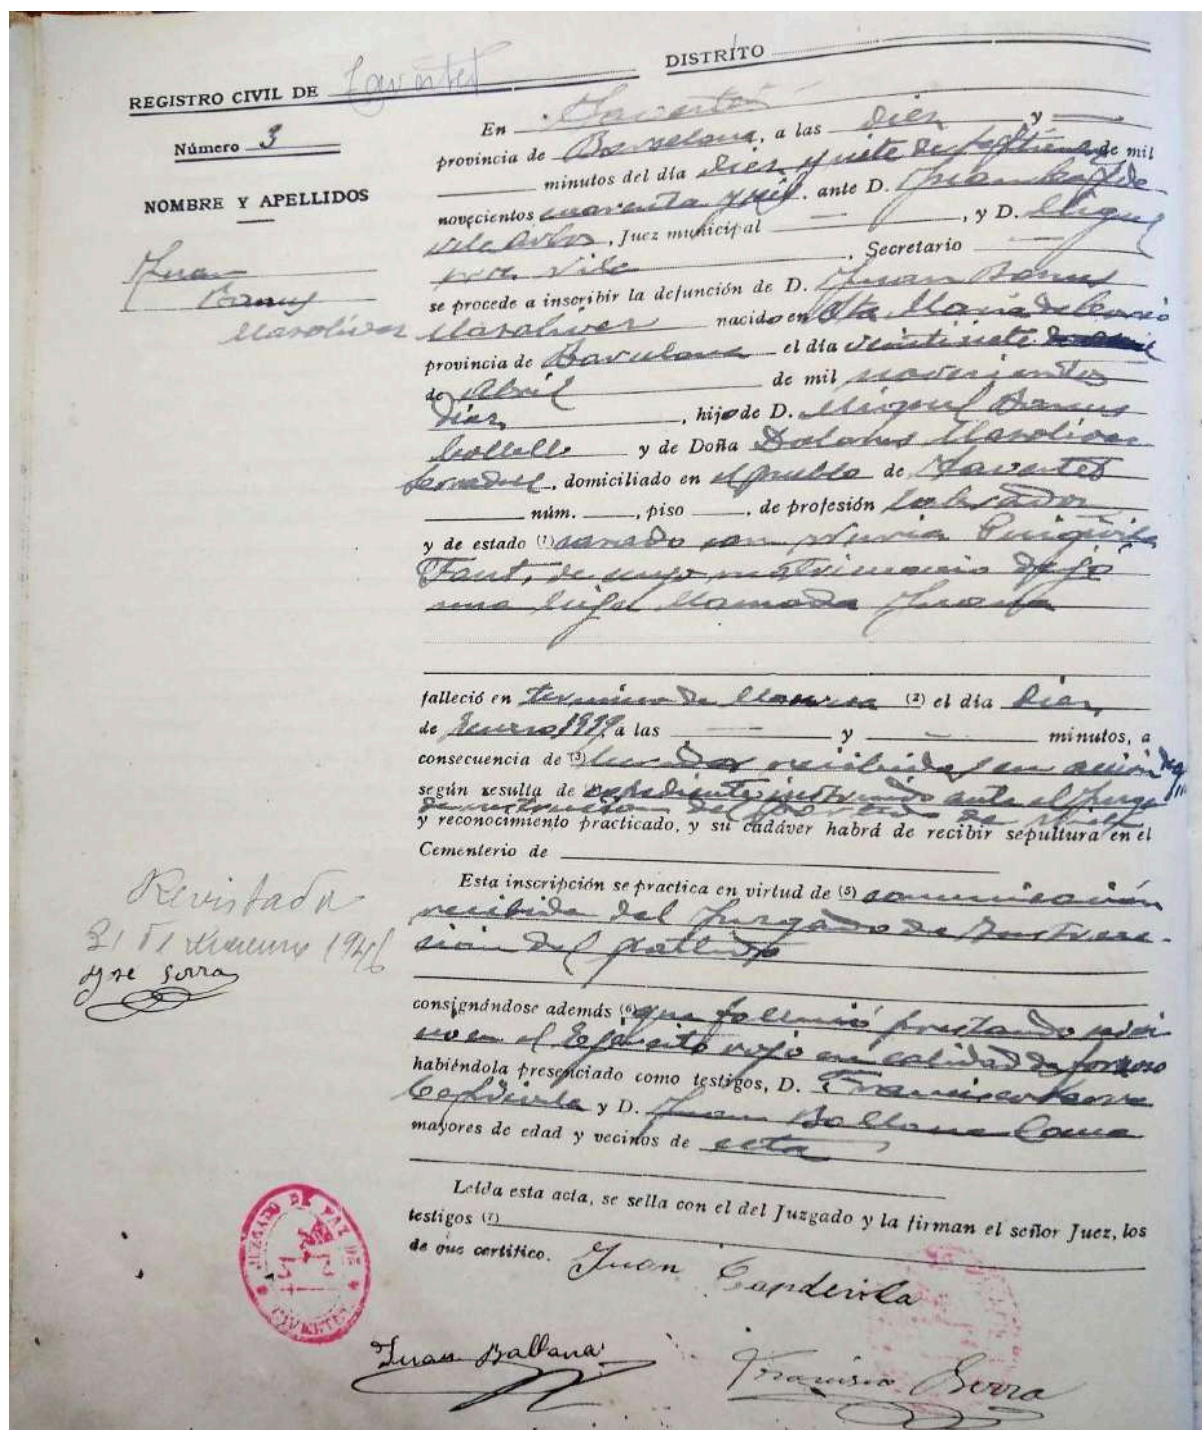 REGISTRO CIVIL DE Tavertet
DISTRITO
Número 3
NOMBRE Y APELLIDOS
Juan
Banus
Masoliver
En Tavertet
provincia de Barcelona, a las diez y
minutos del día diez y siete de Septiembre de mil
novecientos cuarenta y seis, ante D. Juan Capde
vila, Juez municipal, y D. Miguel
Vila, Secretario
se procede a inscribir la defunción de D. Juan Banus
Masoliver nacido en Sta. Maria de Corcó
provincia de Barcelona el día veintisiete
de Abril de mil novecientos
diez, hijo de D. Miguel Banus
y de Doña Dolores Masoliver
, domiciliado en el pueblo de Tavertet
núm. , piso , de profesión labrador
y de estado (1) casado con Nuria Puigvila
Font, de cuyo matrimonio dejó
una hija llamada Juana
falleció en termino de (2) el día diez
de Enero 1939, a las y minutos, a
consecuencia de (3) heridas recibidas en acción de
según resulta de expediente instruido ante el Juzga
de instrucción del partido de
y reconocimiento practicado, y su cadáver habrá de recibir sepultura en el
Cementerio de
Esta inscripción se practica en virtud de (5) comunicación
recibida del Juzgado de Instruc-
ción del partido
consignándose además (6) que falleció prestando servi
en el Ejército rojo en calidad de forzoso
habiéndola presenciado como testigos, D. Francisco Serra
Capdevila y D. Juan Ballana Coma
mayores de edad y vecinos de esta
Revisada
21 de 1946
José Serra
Leída esta acta, se sella con el del Juzgado y la firman el señor Juez, los
testigos (7)
de que certifico.
Juan Capdevila
JUZGADO DE PAZ DE
Juan Ballana
Francisco Serra